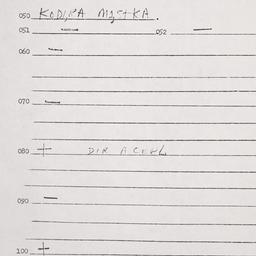 050 KODIRA MISTKA.
051 — 052 —
060 —
070 —
080 + DIR A CEUL
090 —
100 +